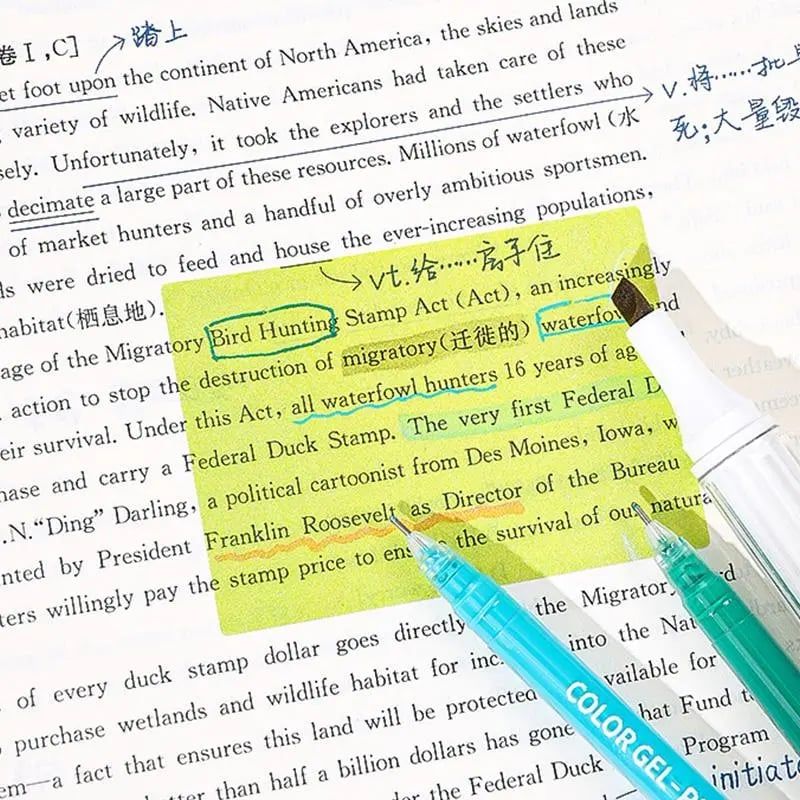 卷Ⅰ,C]
踏上
et foot upon the continent of North America, the skies and lands
variety of wildlife. Native Americans had taken care of these
sely. Unfortunately, it took the explorers and the settlers who
v.将……
死;大量毁
decimate a large part of these resources. Millions of waterfowl (水
of market hunters and a handful of overly ambitious sportsmen.
ds were dried to feed and house the ever-increasing populations,
vt.给……房子住
habitat(栖息地).
age of the Migratory Bird Hunting Stamp Act (Act), an increasingly
action to stop the destruction of migratory(迁徙的) waterfow nd
eir survival. Under this Act, all waterfowl hunters 16 years of ag
hase and carry a Federal Duck Stamp. The very first Federal D
.N."Ding" Darling, a political cartoonist from Des Moines, Iowa, w
nted by President Franklin Roosevelt as Director of the Bureau
ters willingly pay the stamp price to ens the survival of our natura
of every duck stamp dollar goes directly the Migratory rd
purchase wetlands and wildlife habitat for inc into the Nat
em—a fact that ensures this land will be protected vailable for
tter than half a billion dollars has gone hat Fund to
der the Federal Duck Program
initiate
COLOR GEL-P